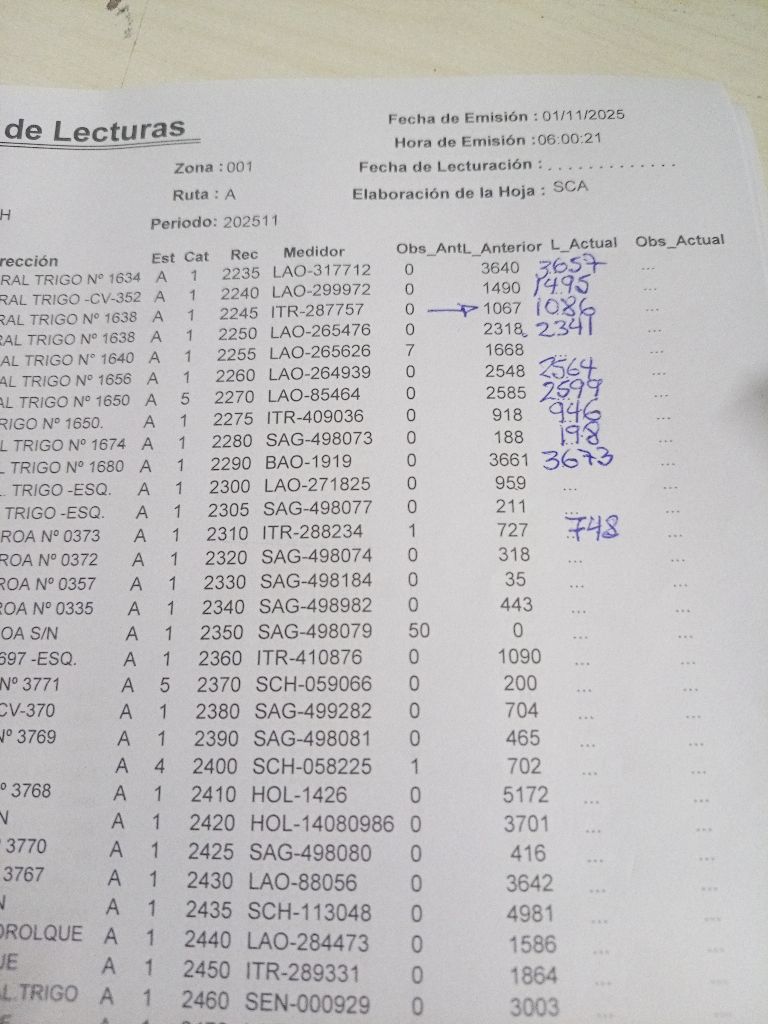 de Lecturas
Fecha de Emisión : 01/11/2025
Hora de Emisión : 06:00:21
Zona : 001
Fecha de Lecturación : . . . . . . . . . . . . .
Ruta : A
Elaboración de la Hoja : SCA
H
Periodo: 202511
rección Est Cat Rec Medidor Obs_Ant L_Anterior L_Actual Obs_Actual
RAL TRIGO Nº 1634 A 1 2235 LAO-317712 0 3640 3657 ...
RAL TRIGO -CV-352 A 1 2240 LAO-299972 0 1490 1495 ...
RAL TRIGO Nº 1638 A 1 2245 ITR-287757 0 → 1067 1086 ...
RAL TRIGO Nº 1638 A 1 2250 LAO-265476 0 2318 2341 ...
AL TRIGO Nº 1640 A 1 2255 LAO-265626 7 1668 ...
AL TRIGO Nº 1656 A 1 2260 LAO-264939 0 2548 2564 ...
AL TRIGO Nº 1650 A 5 2270 LAO-85464 0 2585 2599 ...
RIGO Nº 1650. A 1 2275 ITR-409036 0 918 946 ...
L TRIGO Nº 1674 A 1 2280 SAG-498073 0 188 198 ...
L TRIGO Nº 1680 A 1 2290 BAO-1919 0 3661 3673 ...
. TRIGO -ESQ. A 1 2300 LAO-271825 0 959 ... ...
TRIGO -ESQ. A 1 2305 SAG-498077 0 211 ... ...
ROA Nº 0373 A 1 2310 ITR-288234 1 727 748 ...
ROA Nº 0372 A 1 2320 SAG-498074 0 318 ... ...
ROA Nº 0357 A 1 2330 SAG-498184 0 35 ... ...
ROA Nº 0335 A 1 2340 SAG-498982 0 443 ... ...
OA S/N A 1 2350 SAG-498079 50 0 ... ...
697 -ESQ. A 1 2360 ITR-410876 0 1090 ... ...
Nº 3771 A 5 2370 SCH-059066 0 200 ... ...
CV-370 A 1 2380 SAG-499282 0 704 ... ...
Nº 3769 A 1 2390 SAG-498081 0 465 ... ...
A 4 2400 SCH-058225 1 702 ... ...
º 3768 A 1 2410 HOL-1426 0 5172 ... ...
N A 1 2420 HOL-14080986 0 3701 ... ...
º 3770 A 1 2425 SAG-498080 0 416 ... ...
3767 A 1 2430 LAO-88056 0 3642 ... ...
N A 1 2435 SCH-113048 0 4981 ... ...
OROLQUE A 1 2440 LAO-284473 0 1586 ... ...
UE A 1 2450 ITR-289331 0 1864 ... ...
AL.TRIGO A 1 2460 SEN-000929 0 3003 ... ...